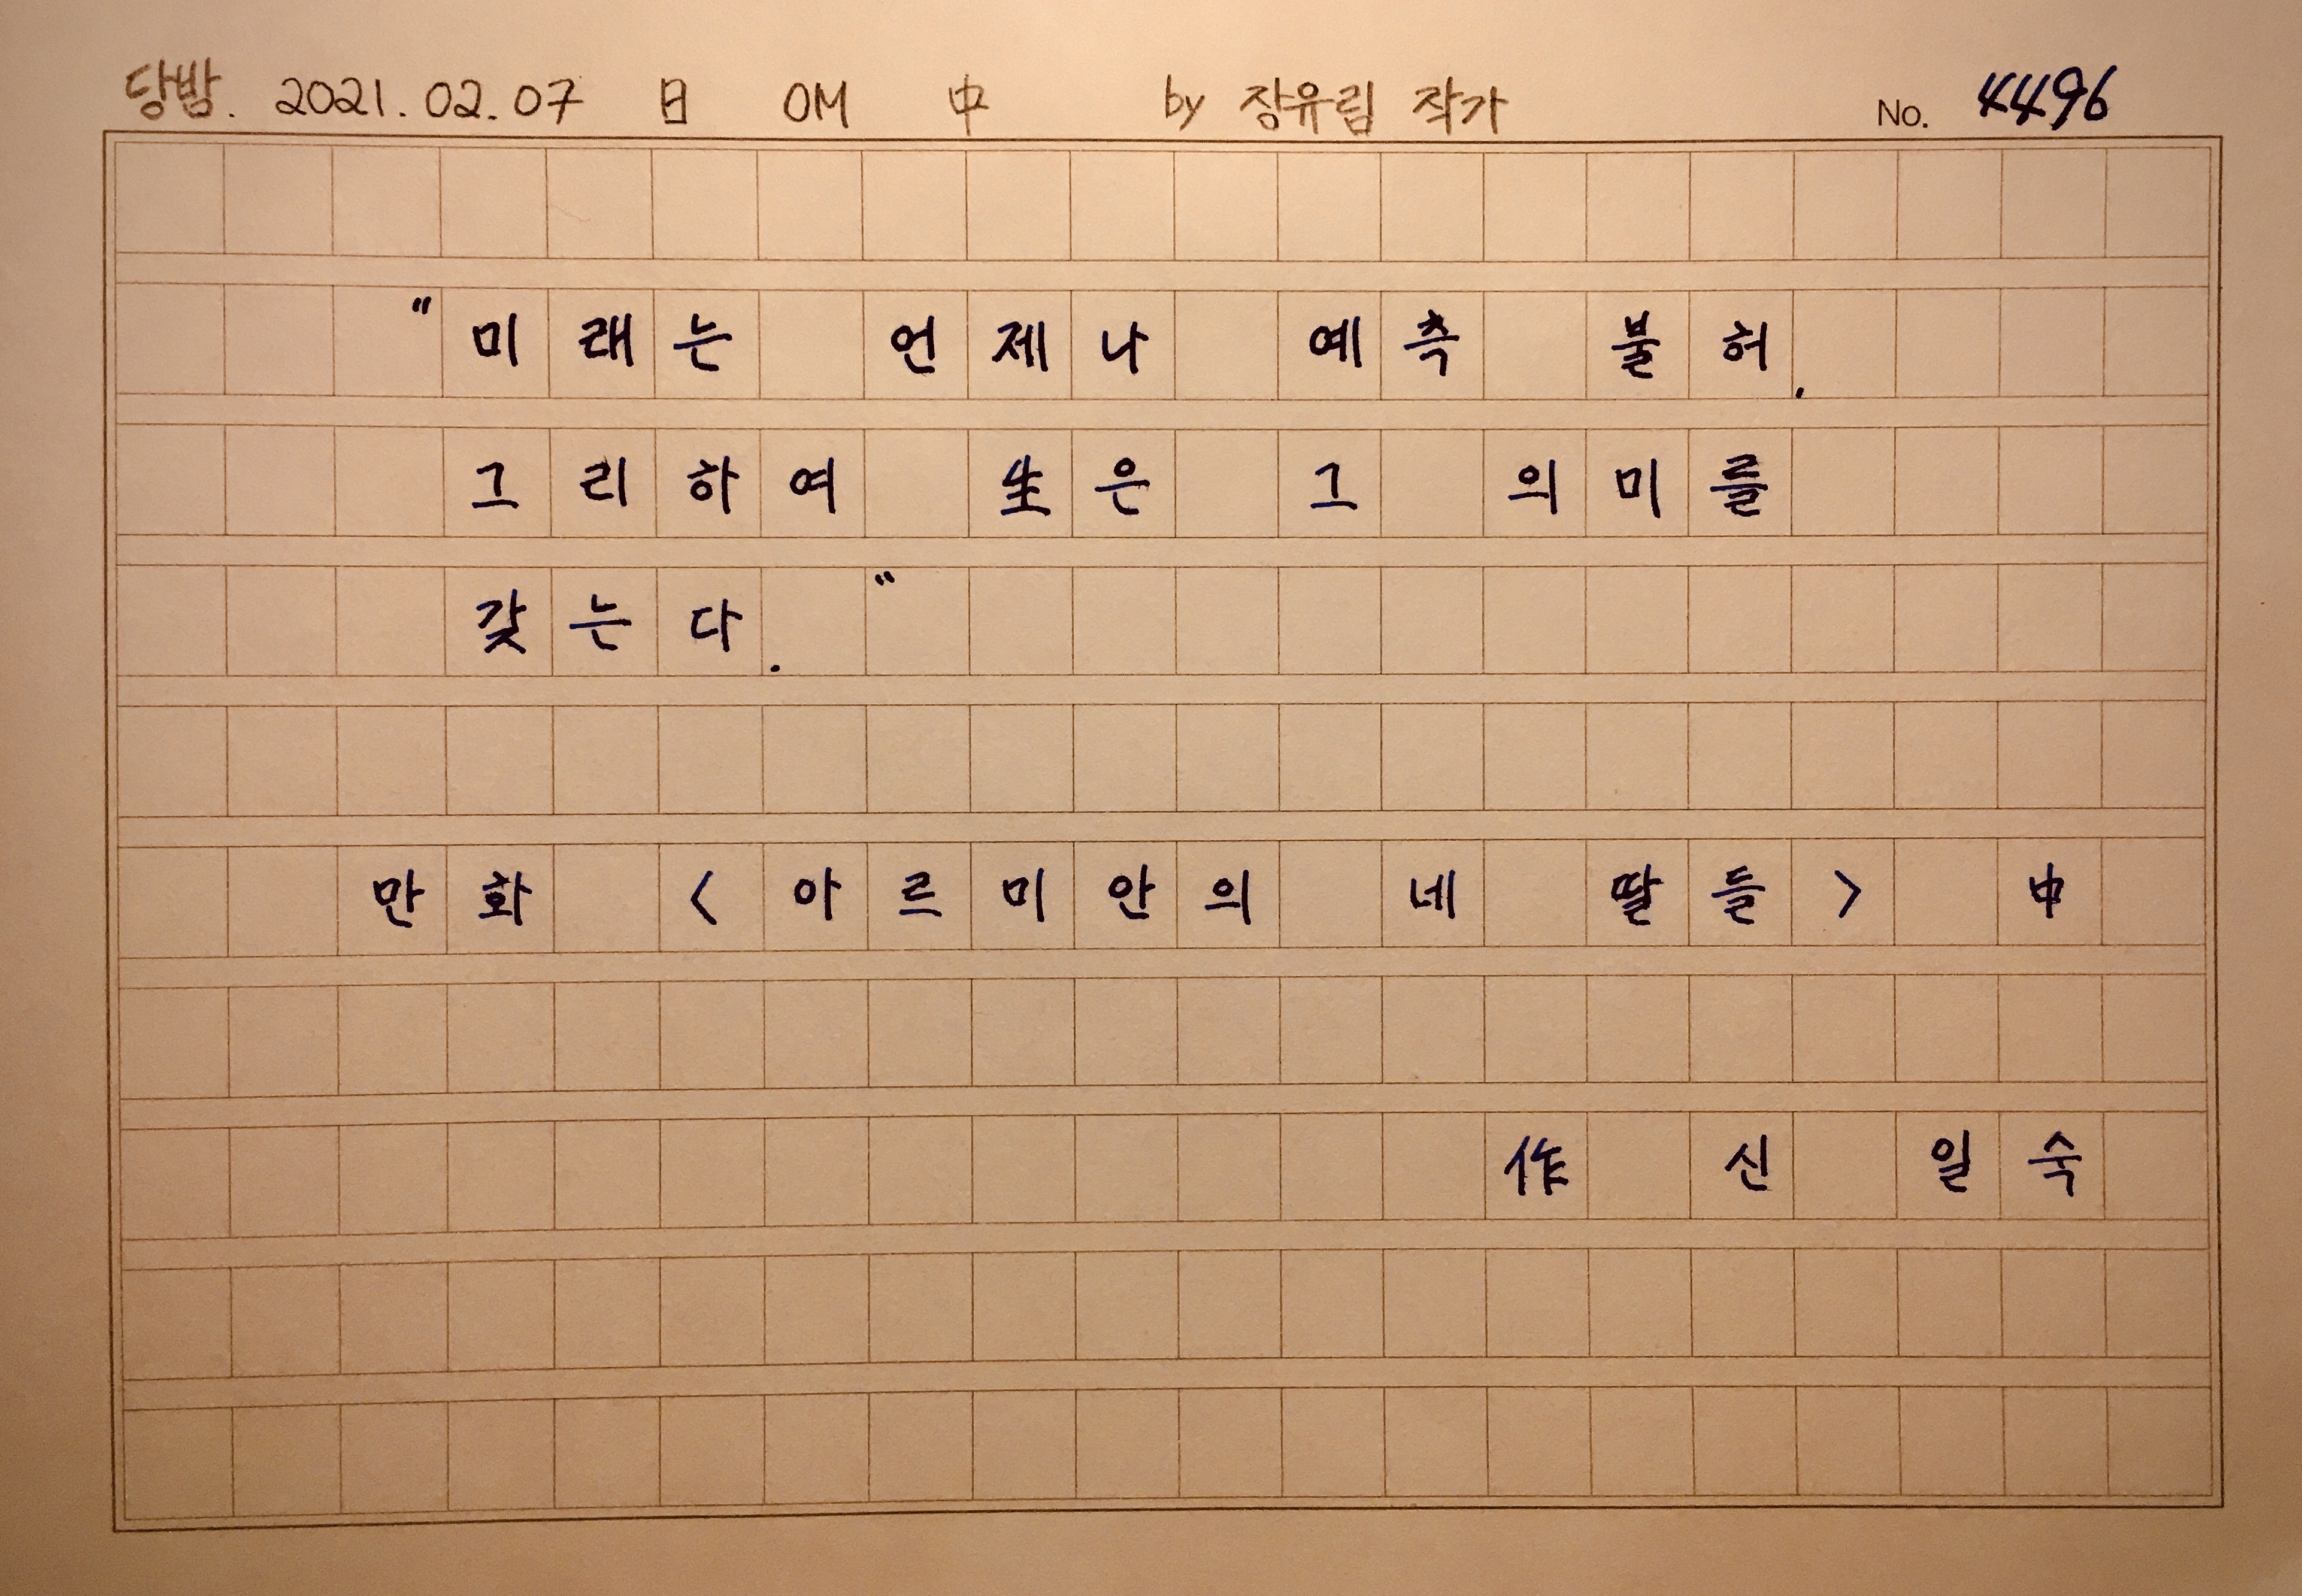 당밤. 2021.02.07 日 OM 中 by 장유림 작가 No. 4496
"미래는 언제나 예측 불허.
그리하여 生은 그 의미를
갖는다."
만화 <아르미안의 네 딸들> 中
作 신 일숙